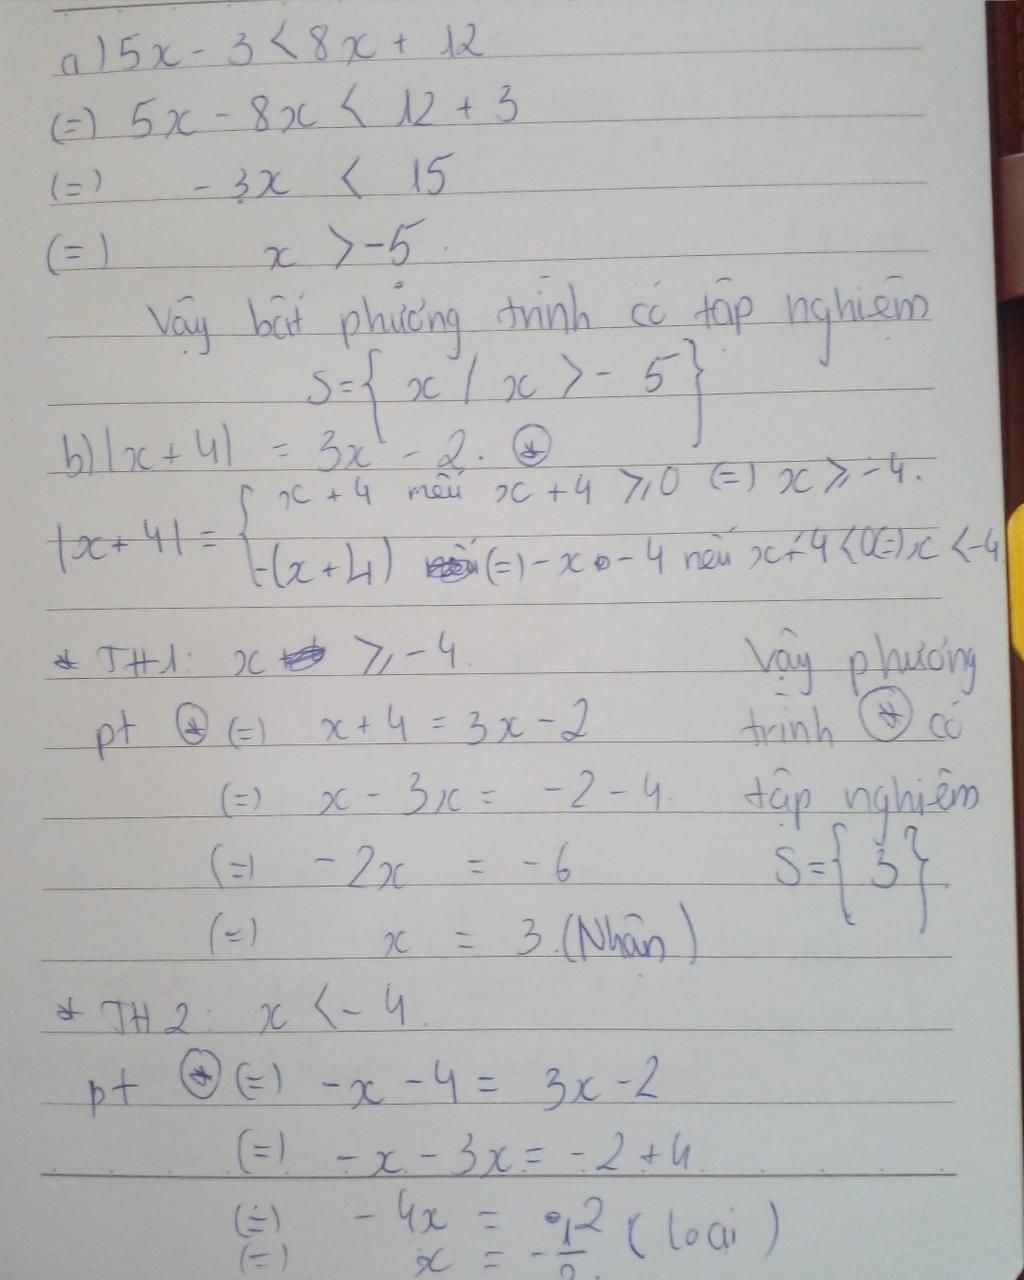 a) 5x - 3 < 8x + 12
(=) 5x - 8x < 12 + 3
(=) - 3x < 15
(=) x > -5.
Vậy bất phương trình có tập nghiệm
S = { x / x > - 5 }
b) |x + 4| = 3x - 2. (*)
|x + 4| = { x + 4 nếu x + 4 ⩾ 0 (=) x ⩾ -4.
-(x + 4) (=) -x - 4 nếu x + 4 < 0 (=) x < -4
* TH1: x ⩾ -4.
pt (*) (=) x + 4 = 3x - 2
(=) x - 3x = -2 - 4.
(=) - 2x = - 6
(=) x = 3. (Nhận)
Vậy phương
trình (*) có
tập nghiệm
S = { 3 }
* TH2: x < - 4.
pt (*) (=) -x - 4 = 3x - 2
(=) -x - 3x = -2 + 4.
(=) - 4x = 2
(=) x = -1/2 (loại)